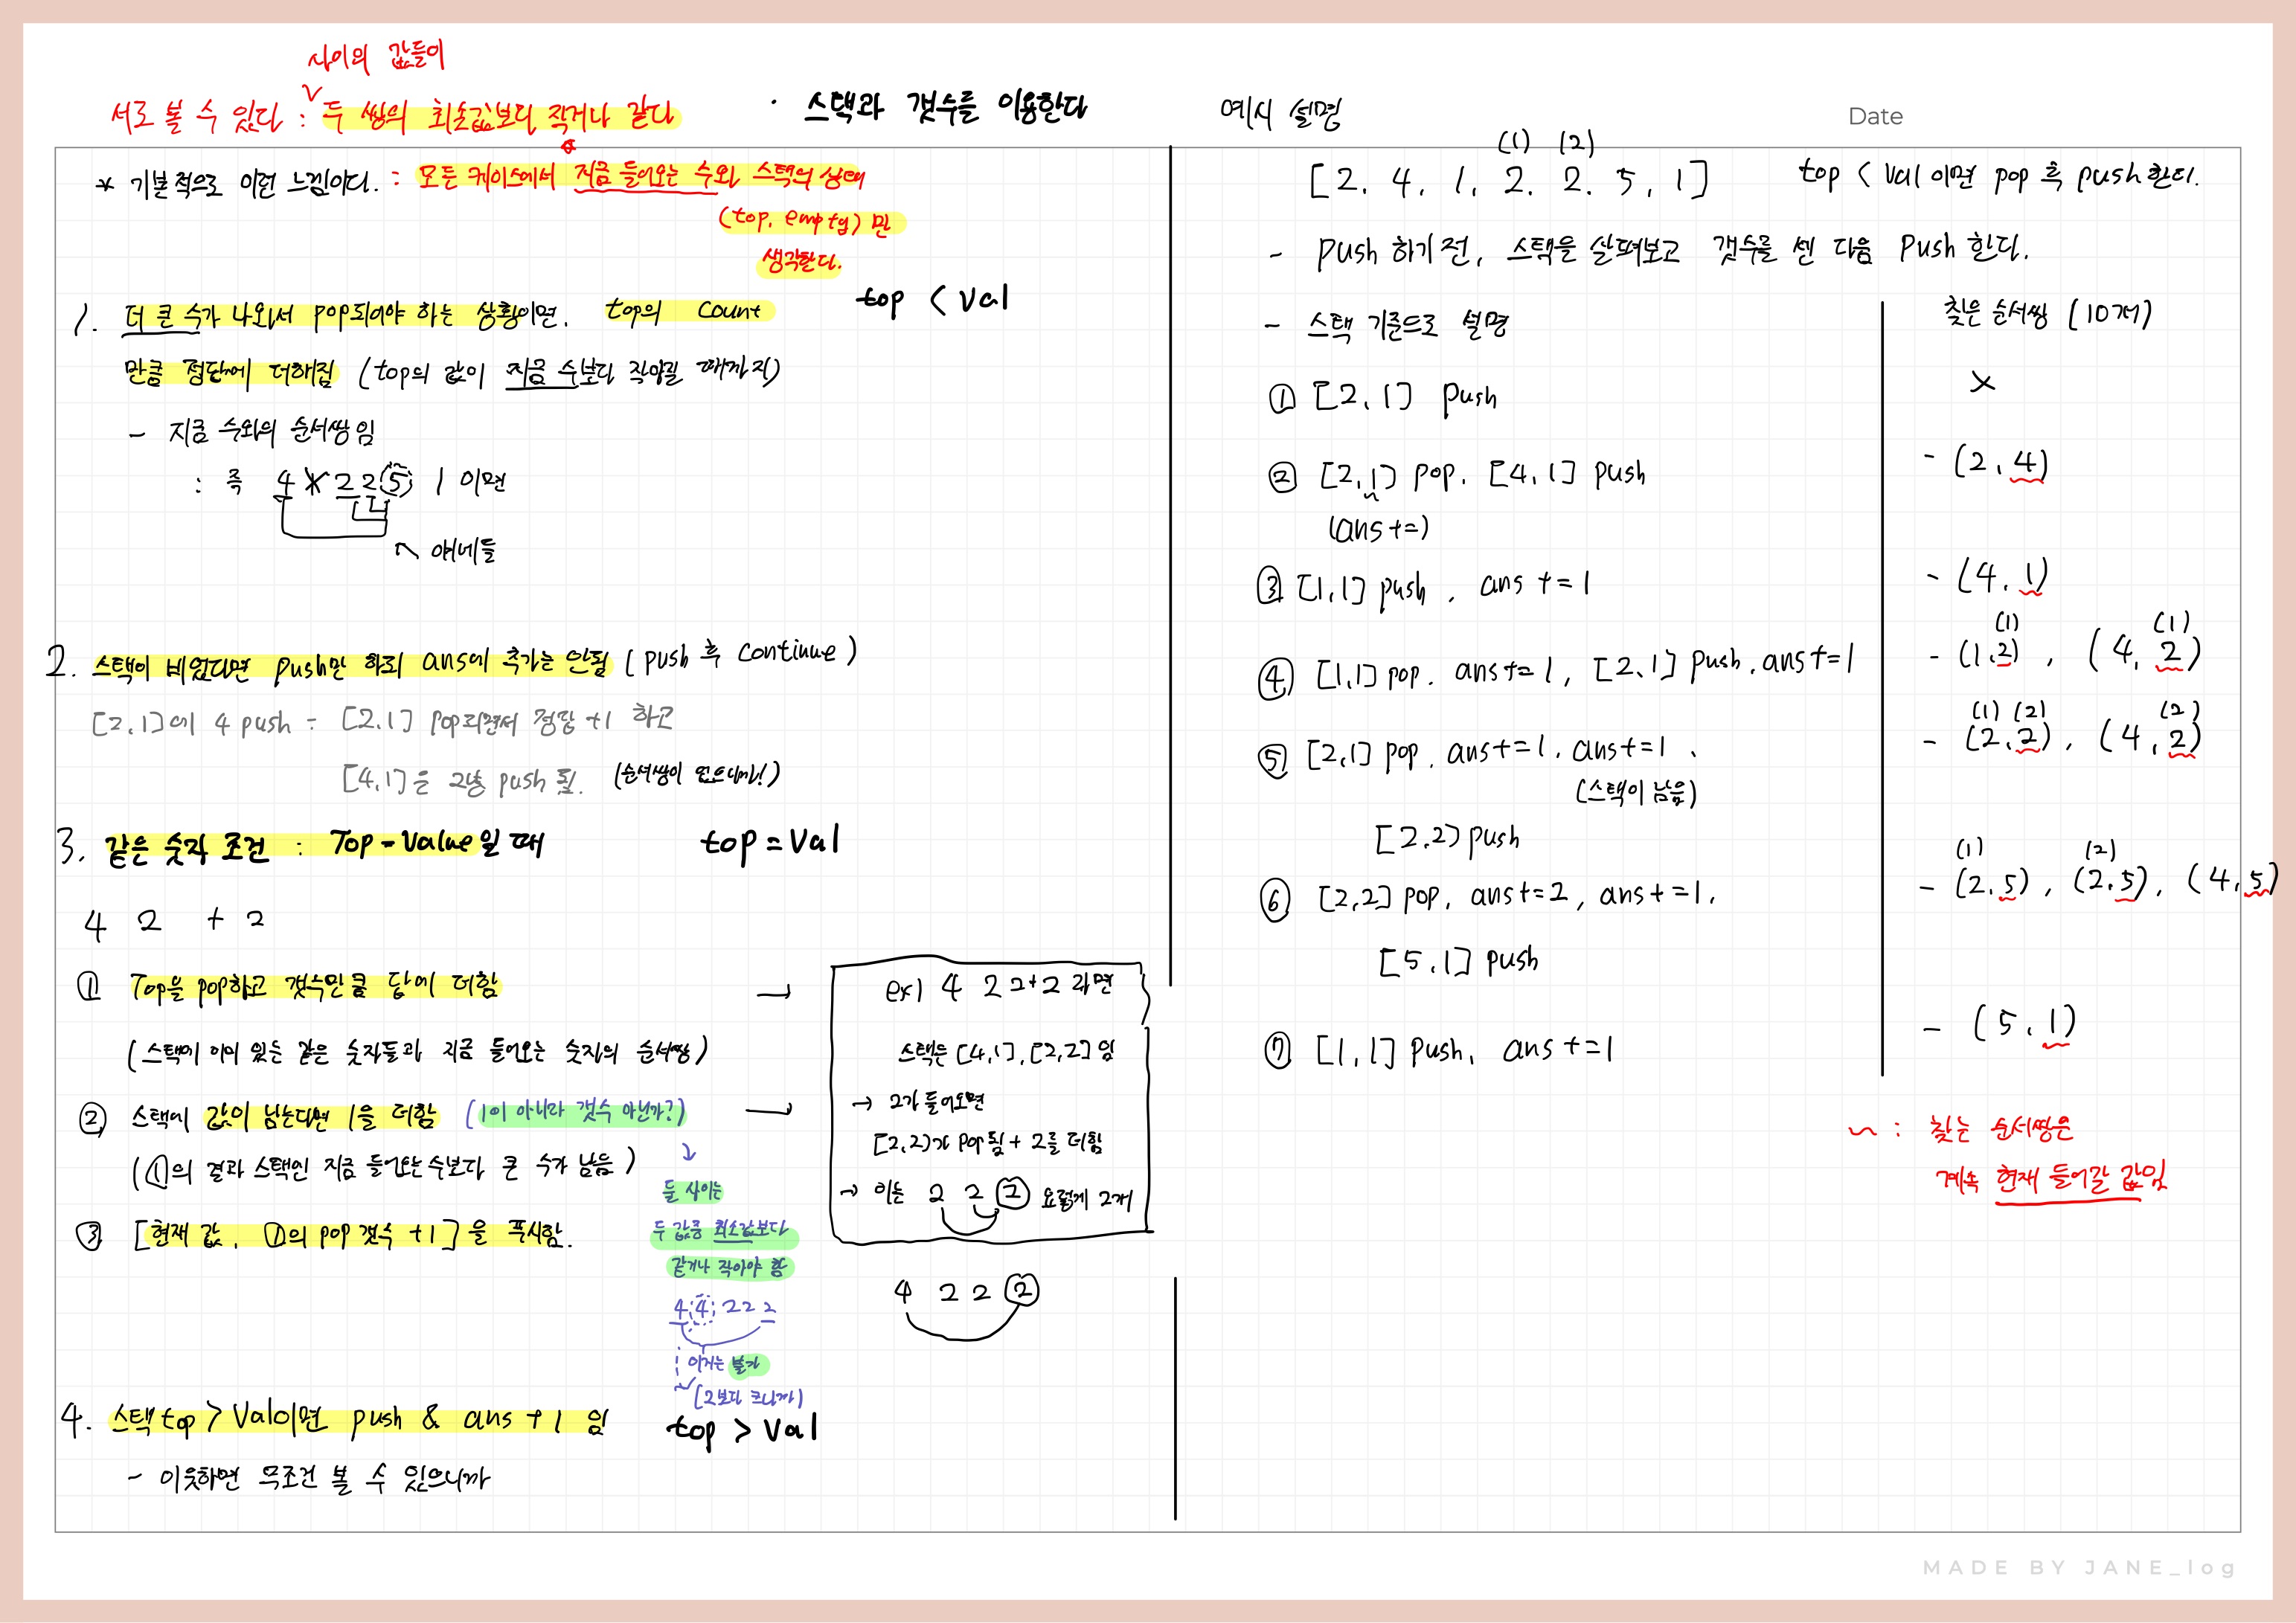 사이의 값들이
서로 볼 수 있다 : 두 쌍의 최솟값보다 작거나 같다
· 스택과 갯수를 이용한다
* 기본적으로 이런 느낌이다. : 모든 케이스에서 지금 들어오는 수와 스택의 상태
(top, empty) 만
생각한다.
1. 더 큰 수가 나와서 pop되어야 하는 상황이면, top의 count
top < Val
만큼 정답에 더해짐 (top의 값이 지금 수보다 작아질 때까지)
- 지금 수와의 순서쌍임
: 즉 4 1 2 2 5 1 이면
얘네들
2. 스택이 비었다면 push만 하되 ans에 추가는 안됨 (push 후 continue)
[2,1]에 4 push - [2,1] pop되면서 정답 +1 하고
[4,1]은 그냥 push 됨. (순서쌍이 없으니까!)
3. 같은 숫자 조건 : Top = Value일 때
top = Val
4 2 + 2
① Top을 pop하고 갯수만큼 답에 더함
(스택에 이미 있는 같은 숫자들과 지금 들어오는 숫자의 순서쌍)
② 스택에 값이 남는다면 1을 더함 (1이 아니라 갯수 아닌가?)
(①의 결과 스택엔 지금 들어오는 수보다 큰 수가 남음)
둘 사이는
두 값중 최소값보다
같거나 작아야 함
4 4 2 2 2
이거는 불가
(2보다 크니까)
③ [현재 값, ①의 pop 갯수 +1] 을 푸시함.
ex) 4 2 2 + 2 라면
스택은 [4,1], [2,2] 임
→ 2가 들어오면
[2,2]가 pop 됨 + 2를 더함
→ 이는 2 2 2 요렇게 2개
4 2 2 2
4. 스택 top > Val이면 push & ans + 1 임
top > Val
- 이웃하면 무조건 볼 수 있으니까
예시 설명
Date
(1) (2)
[2. 4. 1. 2. 2. 5, 1]
top < Val 이면 pop 후 push한다.
- Push 하기 전, 스택을 살펴보고 갯수를 센 다음 Push 한다.
- 스택 기준으로 설명
찾은 순서쌍 (10개)
① [2,1] Push
X
② [2,1] pop. [4,1] push
(ans +=)
- (2,4)
③ [1,1] push, ans += 1
- (4,1)
④ [1,1] pop. ans += 1, [2,1] push. ans += 1
(1) (1)
- (1,2), (4,2)
⑤ [2,1] pop. ans += 1, ans += 1.
(스택이 남음)
[2,2) push
(1) (2) (2)
- (2,2), (4,2)
⑥ [2,2] pop, ans += 2, ans += 1,
[5,1] push
(1) (2)
- (2,5), (2,5), (4,5)
⑦ [1,1] Push, ans += 1
- (5,1)
~ : 찾는 순서쌍은
계속 현재 들어갈 값임
MADE BY JANE_log